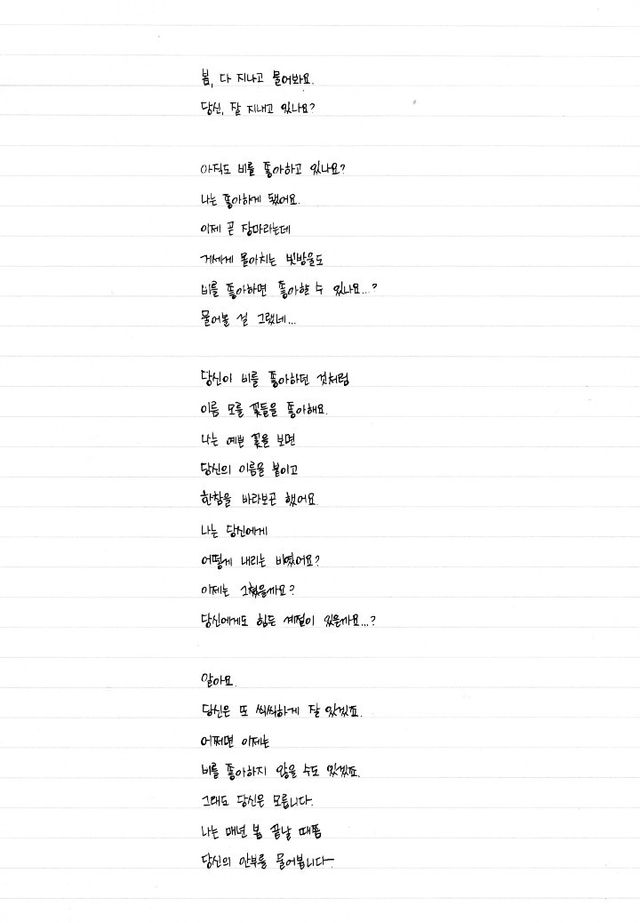 봄, 다 지나고 물어봐요.
당신, 잘 지내고 있나요?
아직도 비를 좋아하고 있나요?
나는 좋아하게 됐어요.
이제 곧 장마라는데
거세게 몰아치는 빗방울도
비를 좋아하면 좋아할 수 있나요...?
물어볼 걸 그랬네...
당신이 비를 좋아하던 것처럼
이름 모를 꽃들을 좋아해요.
나는 예쁜 꽃을 보면
당신의 이름을 붙이고
한참을 바라보곤 했어요.
나는 당신에게
어떻게 내리는 비였어요?
이제는 그쳤을까요?
당신에게도 힘든 계절이 있을까요...?
알아요.
당신은 또 씩씩하게 잘 있겠죠.
어쩌면 이제는
비를 좋아하지 않을 수도 있겠죠.
그래도 당신은 모릅니다.
나는 매년 봄 끝날 때쯤
당신의 안부를 물어봅니다-